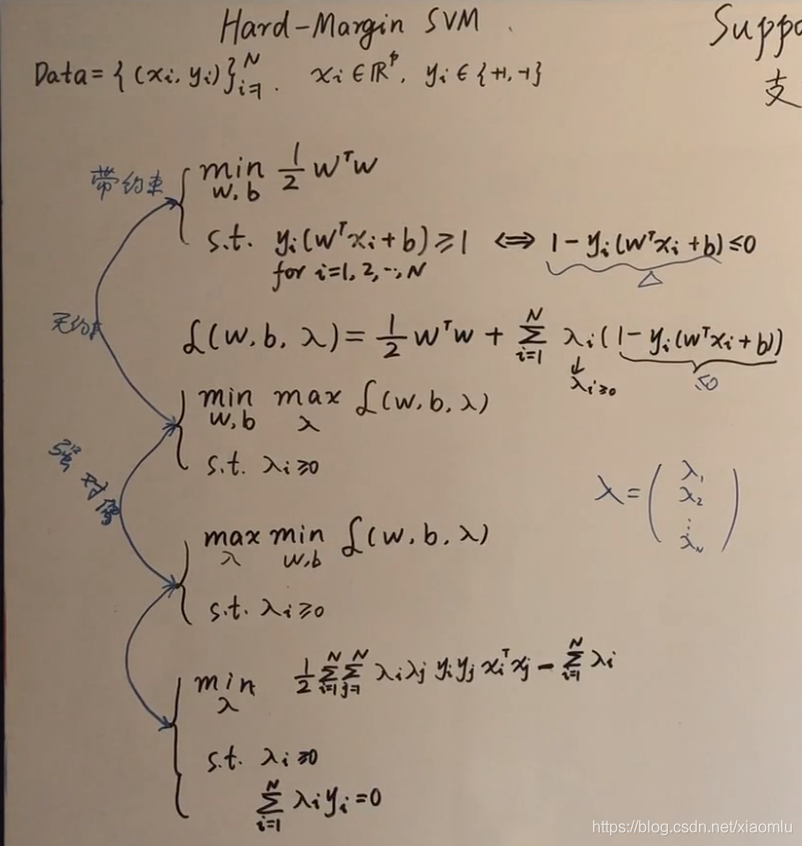 Hard-Margin SVM
Suppo
支
Data = {(xi, yi)}_{i=1}^{N}. xi ∈ ℝ^p, yi ∈ {+1, -1}
带约束
min_{w,b} 1/2 w^T w
s.t. yi(w^T xi + b) ≥ 1 ⟺ 1 - yi(w^T xi + b) ≤ 0
for i=1, 2, ..., N
Δ
无约束
ℒ(w, b, λ) = 1/2 w^T w + Σ_{i=1}^{N} λi(1 - yi(w^T xi + b))
↓
λi ≥ 0
≤0
min_{w,b} max_{λ} ℒ(w, b, λ)
s.t. λi ≥ 0
强对偶
λ = (λ1 λ2 ⋮ λN)
max_{λ} min_{w,b} ℒ(w, b, λ)
s.t. λi ≥ 0
min_{λ} 1/2 Σ_{i=1}^{N} Σ_{j=1}^{N} λi λj yi yj xi^T xj - Σ_{i=1}^{N} λi
s.t. λi ≥ 0
Σ_{i=1}^{N} λi yi = 0
https://blog.csdn.net/xiaomlu